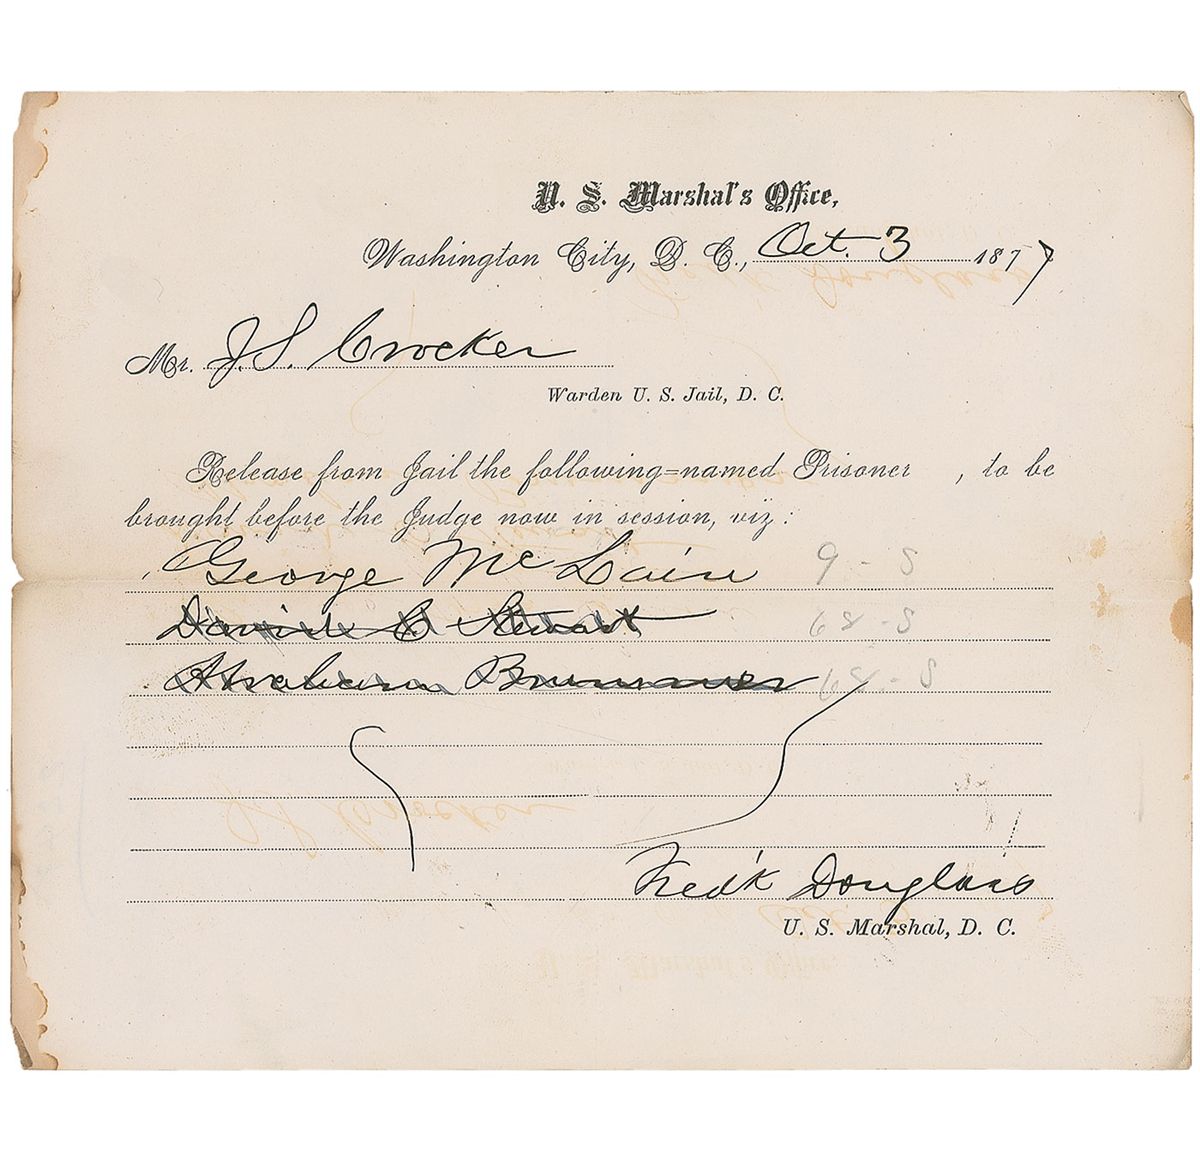 U. S. Marshal's Office,
Washington City, D. C., Oct. 3 1877
Mr. J. S. Crocker
Warden U. S. Jail, D. C.
Release from Jail the following=named Prisoner , to be
brought before the Judge now in session, viz:
George McLain 9 - S
David C Stewart 68 - S
Abraham Brummer 68 - S
Fredk Douglass
U. S. Marshal, D. C.